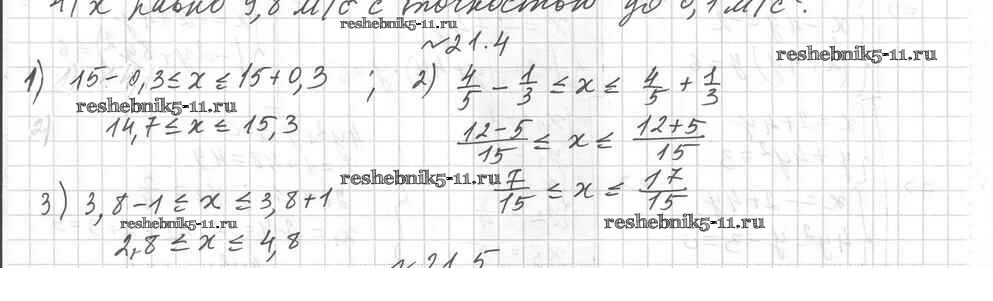 4) x равно 9,8 м/с² с точностью до 0,1 м/с².
reshebnik5-11.ru
№21.4
reshebnik5-11.ru
1) 15-0,3≤x≤15+0,3 ; 2) 4/5 - 1/3 ≤ x ≤ 4/5 + 1/3
reshebnik5-11.ru
14,7≤x≤15,3
(12-5)/15 ≤ x ≤ (12+5)/15
reshebnik5-11.ru
7/15 ≤ x ≤ 17/15
3) 3,8-1≤x≤3,8+1
reshebnik5-11.ru
reshebnik5-11.ru
2,8≤x≤4,8
№21.5